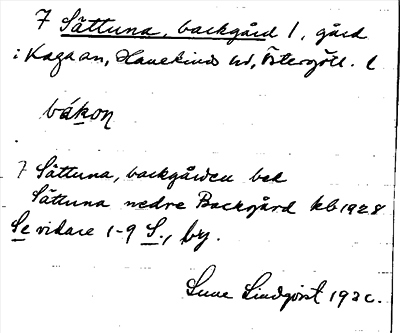 7 Sättuna, backgård 1, gård
i Kaga sn, Hanekinds hd, Östergötl. l
båkon
7 Sättuna, backgården bel
Sättuna nedre Backgård kb 1928
Se vidare 1-9 S., by.
Sune Lindqvist 192